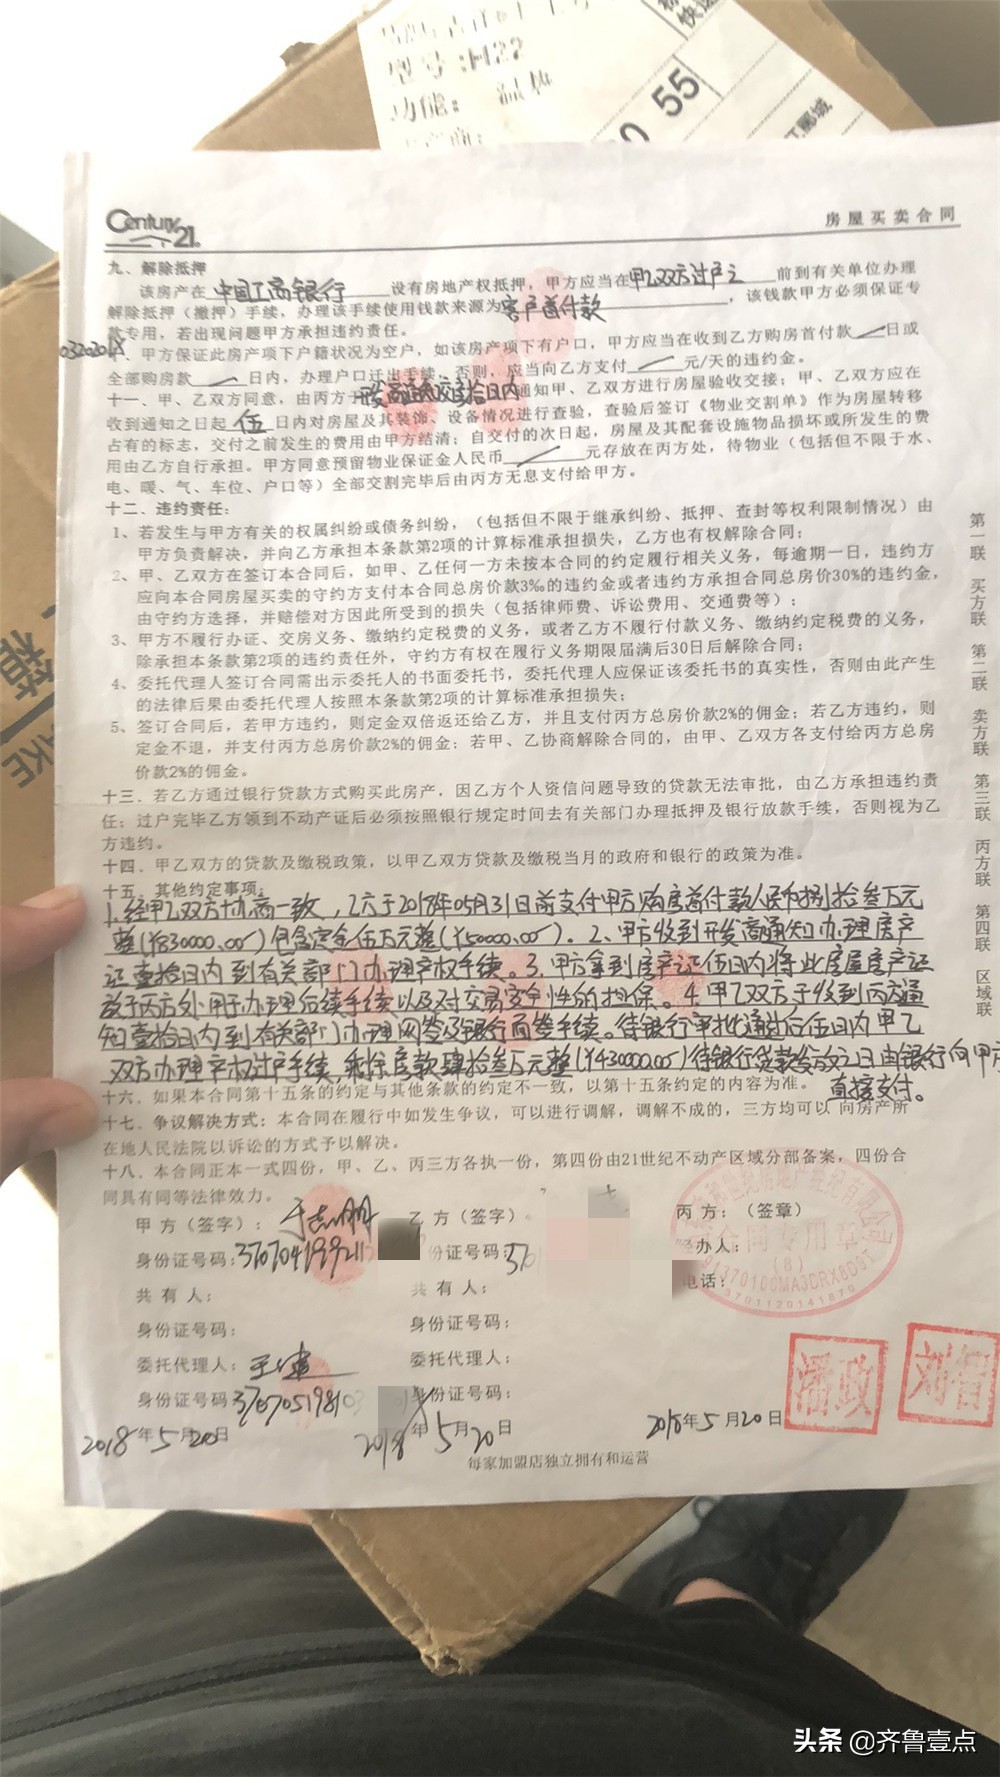 型号:H22
功能:
55
快速
Century 21
房屋买卖合同
九、解除抵押
该房产在中国工商银行设有房地产权抵押，甲方应当在甲乙双方过户之前到有关单位办理
解除抵押（撤押）手续，办理该手续使用钱款来源为客户首付款，该钱款甲方必须保证专
款专用，若出现问题甲方承担违约责任。
十、甲方保证此房产项下户籍状况为空户，如该房产项下有户口，甲方应当在收到乙方购房首付款日或
全部购房款日内，办理户口迁出手续，否则，应当向乙方支付元/天的违约金。
十一、甲、乙双方同意，由丙方于开发商通知交房拾日内通知甲、乙双方进行房屋验收交接；甲、乙双方应在
收到通知之日起伍日内对房屋及其装饰、设备情况进行查验，查验后签订《物业交割单》作为房屋转移
占有的标志，交付之前发生的费用由甲方结清；自交付的次日起，房屋及其配套设施物品损坏或所发生的费
用由乙方自行承担。甲方同意预留物业保证金人民币元存放在丙方处，待物业（包括但不限于水、
电、暖、气、车位、户口等）全部交割完毕后由丙方无息支付给甲方。
十二、违约责任：
1、若发生与甲方有关的权属纠纷或债务纠纷，（包括但不限于继承纠纷、抵押、查封等权利限制情况）由
甲方负责解决，并向乙方承担本条款第2项的计算标准承担损失，乙方也有权解除合同；
2、甲、乙双方在签订本合同后，如甲、乙任何一方未按本合同的约定履行相关义务，每逾期一日，违约方
应向本合同房屋买卖的守约方支付本合同总房价款3‰的违约金或者违约方承担合同总房价30%的违约金，
由守约方选择，并赔偿对方因此所受到的损失（包括律师费、诉讼费用、交通费等）；
3、甲方不履行办证、交房义务、缴纳约定税费的义务，或者乙方不履行付款义务、缴纳约定税费的义务，
除承担本条款第2项的违约责任外，守约方有权在履行义务期限届满后30日后解除合同；
4、委托代理人签订合同需出示委托人的书面委托书，委托代理人应保证该委托书的真实性，否则由此产生
的法律后果由委托代理人按照本条款第2项的计算标准承担损失；
5、签订合同后，若甲方违约，则定金双倍返还给乙方，并且支付丙方总房价款2%的佣金；若乙方违约，则
定金不退，并支付丙方总房价款2%的佣金；若甲、乙协商解除合同的，由甲、乙双方各支付给丙方总房
价款2%的佣金。
十三、若乙方通过银行贷款方式购买此房产，因乙方个人资信问题导致的贷款无法审批，由乙方承担违约责
任；过户完毕乙方领到不动产证后必须按照银行规定时间去有关部门办理抵押及银行放款手续，否则视为乙
方违约。
十四、甲乙双方的贷款及缴税政策，以甲乙双方贷款及缴税当月的政府和银行的政策为准。
十五、其他约定事项：
1.经甲乙双方协商一致，乙方于2018年05月31日前支付甲方购房首付款人民币捌拾叁万元
整(¥830000.00)包含定金伍万元整(¥50000.00)。2、甲方收到开发商通知办理房产
证壹拾日内到有关部门办理产权手续。3、甲方拿到房产证伍日内将此房屋房产证
放于丙方处用于办理后续手续以及对交易安全性的担保。4、甲乙双方于收到丙方通
知壹拾日内到有关部门办理网签及银行面签手续。待银行审批通过后伍日内甲乙
双方办理产权过户手续，剩余房款肆拾叁万元整(¥430000.00)待银行贷款发放之日由银行向甲方
直接支付。
十六、如果本合同第十五条的约定与其他条款的约定不一致，以第十五条约定的内容为准。
十七、争议解决方式：本合同在履行中如发生争议，可以进行调解，调解不成的，三方均可以 向房产所
在地人民法院以诉讼的方式予以解决。
十八、本合同正本一式四份，甲、乙、丙三方各执一份，第四份由21世纪不动产区域分部备案，四份合
同具有同等法律效力。
甲方（签字）：于志明
身份证号码:37070419921
共有人：
身份证号码：
委托代理人：王健
身份证号码370705198103
2018年5月20日
乙方（签字）
份证号码：370
共有人：
身份证号码：
委托代理人：
身份证号码：
2018年5月20日
丙方：（签章）
经办人：
电话：
合同专用章
(8)
91370100MA3CRX8D9T
3701120141870
潘政
刘智
2018年5月20日
每家加盟店独立拥有和运营
第一联 买方联 第二联 卖方联 第三联 丙方联 第四联 区域联
头条 @齐鲁壹点